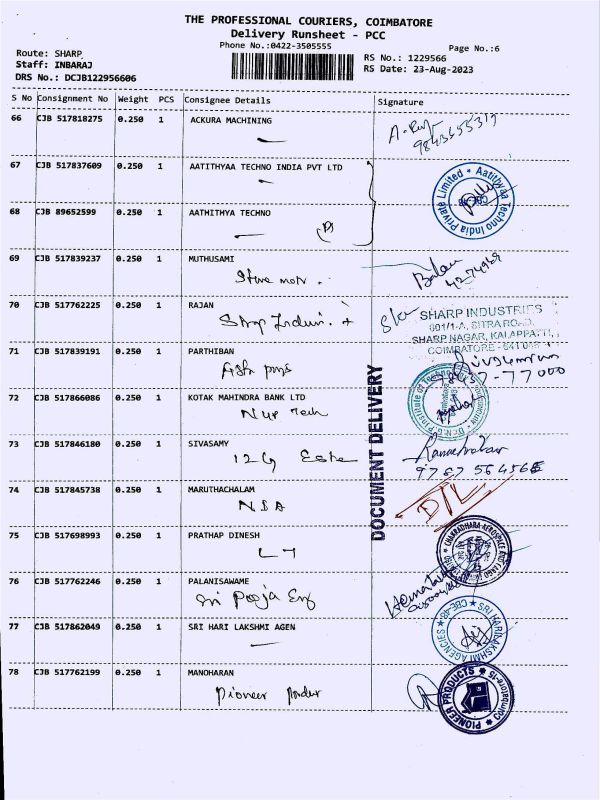 THE PROFESSIONAL COURIERS, COIMBATORE
Delivery Runsheet - PCC
Phone No.:0422-3505555
Page No.:6
Route: SHARP
Staff: INBARAJ
DRS No.: DCJB122956606
RS No.: 1229566
RS Date: 23-Aug-2023
S No Consignment No Weight PCS Consignee Details Signature
66 CJB 517818275 0.250 1 ACKURA MACHINING
67 CJB 517837609 0.250 1 AATITHYAA TECHNO INDIA PVT LTD
Aatithyaa Techno India Private Limited CBE-48
68 CJB 89652599 0.250 1 AATHITHYA TECHNO
69 CJB 517839237 0.250 1 MUTHUSAMI
Balan
70 CJB 517762225 0.250 1 RAJAN
SHARP INDUSTRIES
601/1-A, SITRA ROAD,
SHARP NAGAR, KALAPPATTI,
COIMBATORE - 641 048
71 CJB 517839191 0.250 1 PARTHIBAN
77000
72 CJB 517866086 0.250 1 KOTAK MAHINDRA BANK LTD
Tech
73 CJB 517846180 0.250 1 SIVASAMY
12G
DOCUMENT DELIVERY
74 CJB 517845738 0.250 1 MARUTHACHALAM
D/L
75 CJB 517698993 0.250 1 PRATHAP DINESH
76 CJB 517762246 0.250 1 PALANISAWAME
Sri Pooja Eng
77 CJB 517862049 0.250 1 SRI HARI LAKSHMI AGEN
SRI HARI LAKSHMI AGENCIES CBE-48
78 CJB 517762199 0.250 1 MANOHARAN
Pioneer
PIONEER PRODUCTS Coimbatore-15